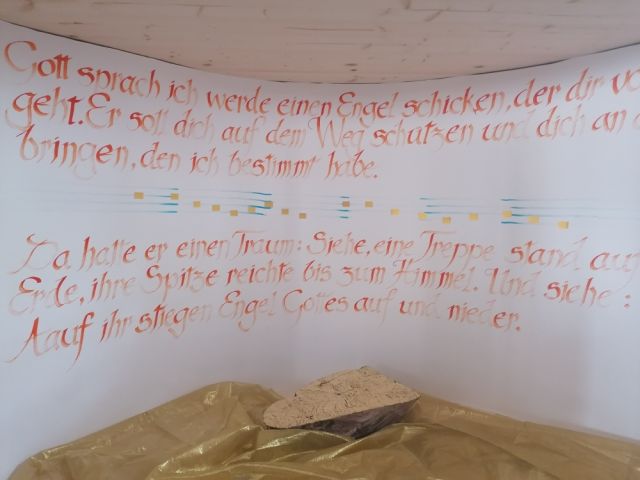 Gott sprach ich werde einen Engel schicken, der dir vo
geht. Er soll dich auf dem Weg schützen und dich an
bringen, den ich bestimmt habe.
Da hatte er einen Traum: Siehe, eine Treppe stand auf
Erde, ihre Spitze reichte bis zum Himmel. Und siehe:
Aauf ihr stiegen Engel Gottes auf und nieder.